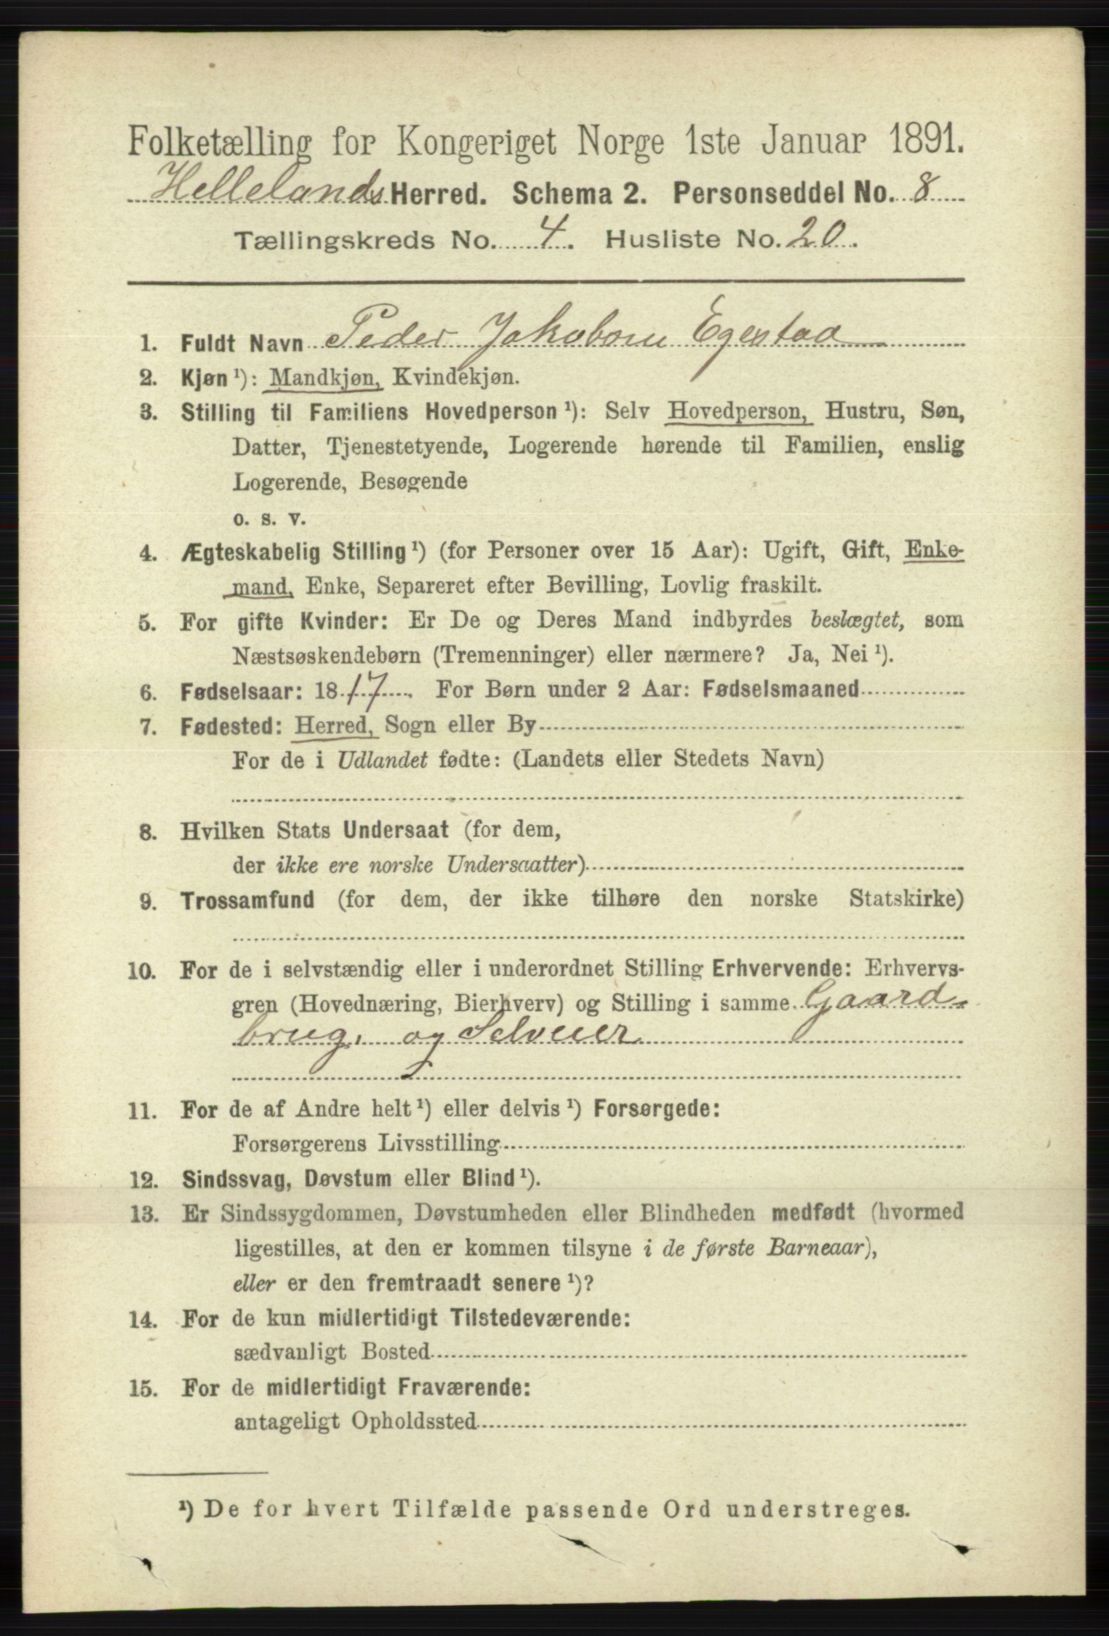 Folketælling for Kongeriget Norge 1ste Januar 1891.
Hellelands Herred. Schema 2. Personseddel No. 8
Tællingskreds No. 4. Husliste No. 20.
1. Fuldt Navn Peder Jakobsen Egestad
2. Kjøn¹): Mandkjøn, Kvindekjøn.
3. Stilling til Familiens Hovedperson¹): Selv Hovedperson, Hustru, Søn,
Datter, Tjenestetyende, Logerende hørende til Familien, enslig
Logerende, Besøgende
o. s. v.
4. Ægteskabelig Stilling¹) (for Personer over 15 Aar): Ugift, Gift, Enke-
mand, Enke, Separeret efter Bevilling, Lovlig fraskilt.
5. For gifte Kvinder: Er De og Deres Mand indbyrdes beslægtet, som
Næstsøskendebørn (Tremenninger) eller nærmere? Ja, Nei¹).
6. Fødselsaar: 1817. For Børn under 2 Aar: Fødselsmaaned
7. Fødested: Herred, Sogn eller By
For de i Udlandet fødte: (Landets eller Stedets Navn)
8. Hvilken Stats Undersaat (for dem,
der ikke ere norske Undersaatter)
9. Trossamfund (for dem, der ikke tilhøre den norske Statskirke)
10. For de i selvstændig eller i underordnet Stilling Erhvervende: Erhvervs-
gren (Hovednæring, Bierhverv) og Stilling i samme Gaard
brug. og Selveier
11. For de af Andre helt¹) eller delvis¹) Forsørgede:
Forsørgerens Livsstilling
12. Sindssvag, Døvstum eller Blind¹).
13. Er Sindssygdommen, Døvstumheden eller Blindheden medfødt (hvormed
ligestilles, at den er kommen tilsyne i de første Barneaar),
eller er den fremtraadt senere¹)?
14. For de kun midlertidigt Tilstedeværende:
sædvanligt Bosted
15. For de midlertidigt Fraværende:
antageligt Opholdssted
¹) De for hvert Tilfælde passende Ord understreges.